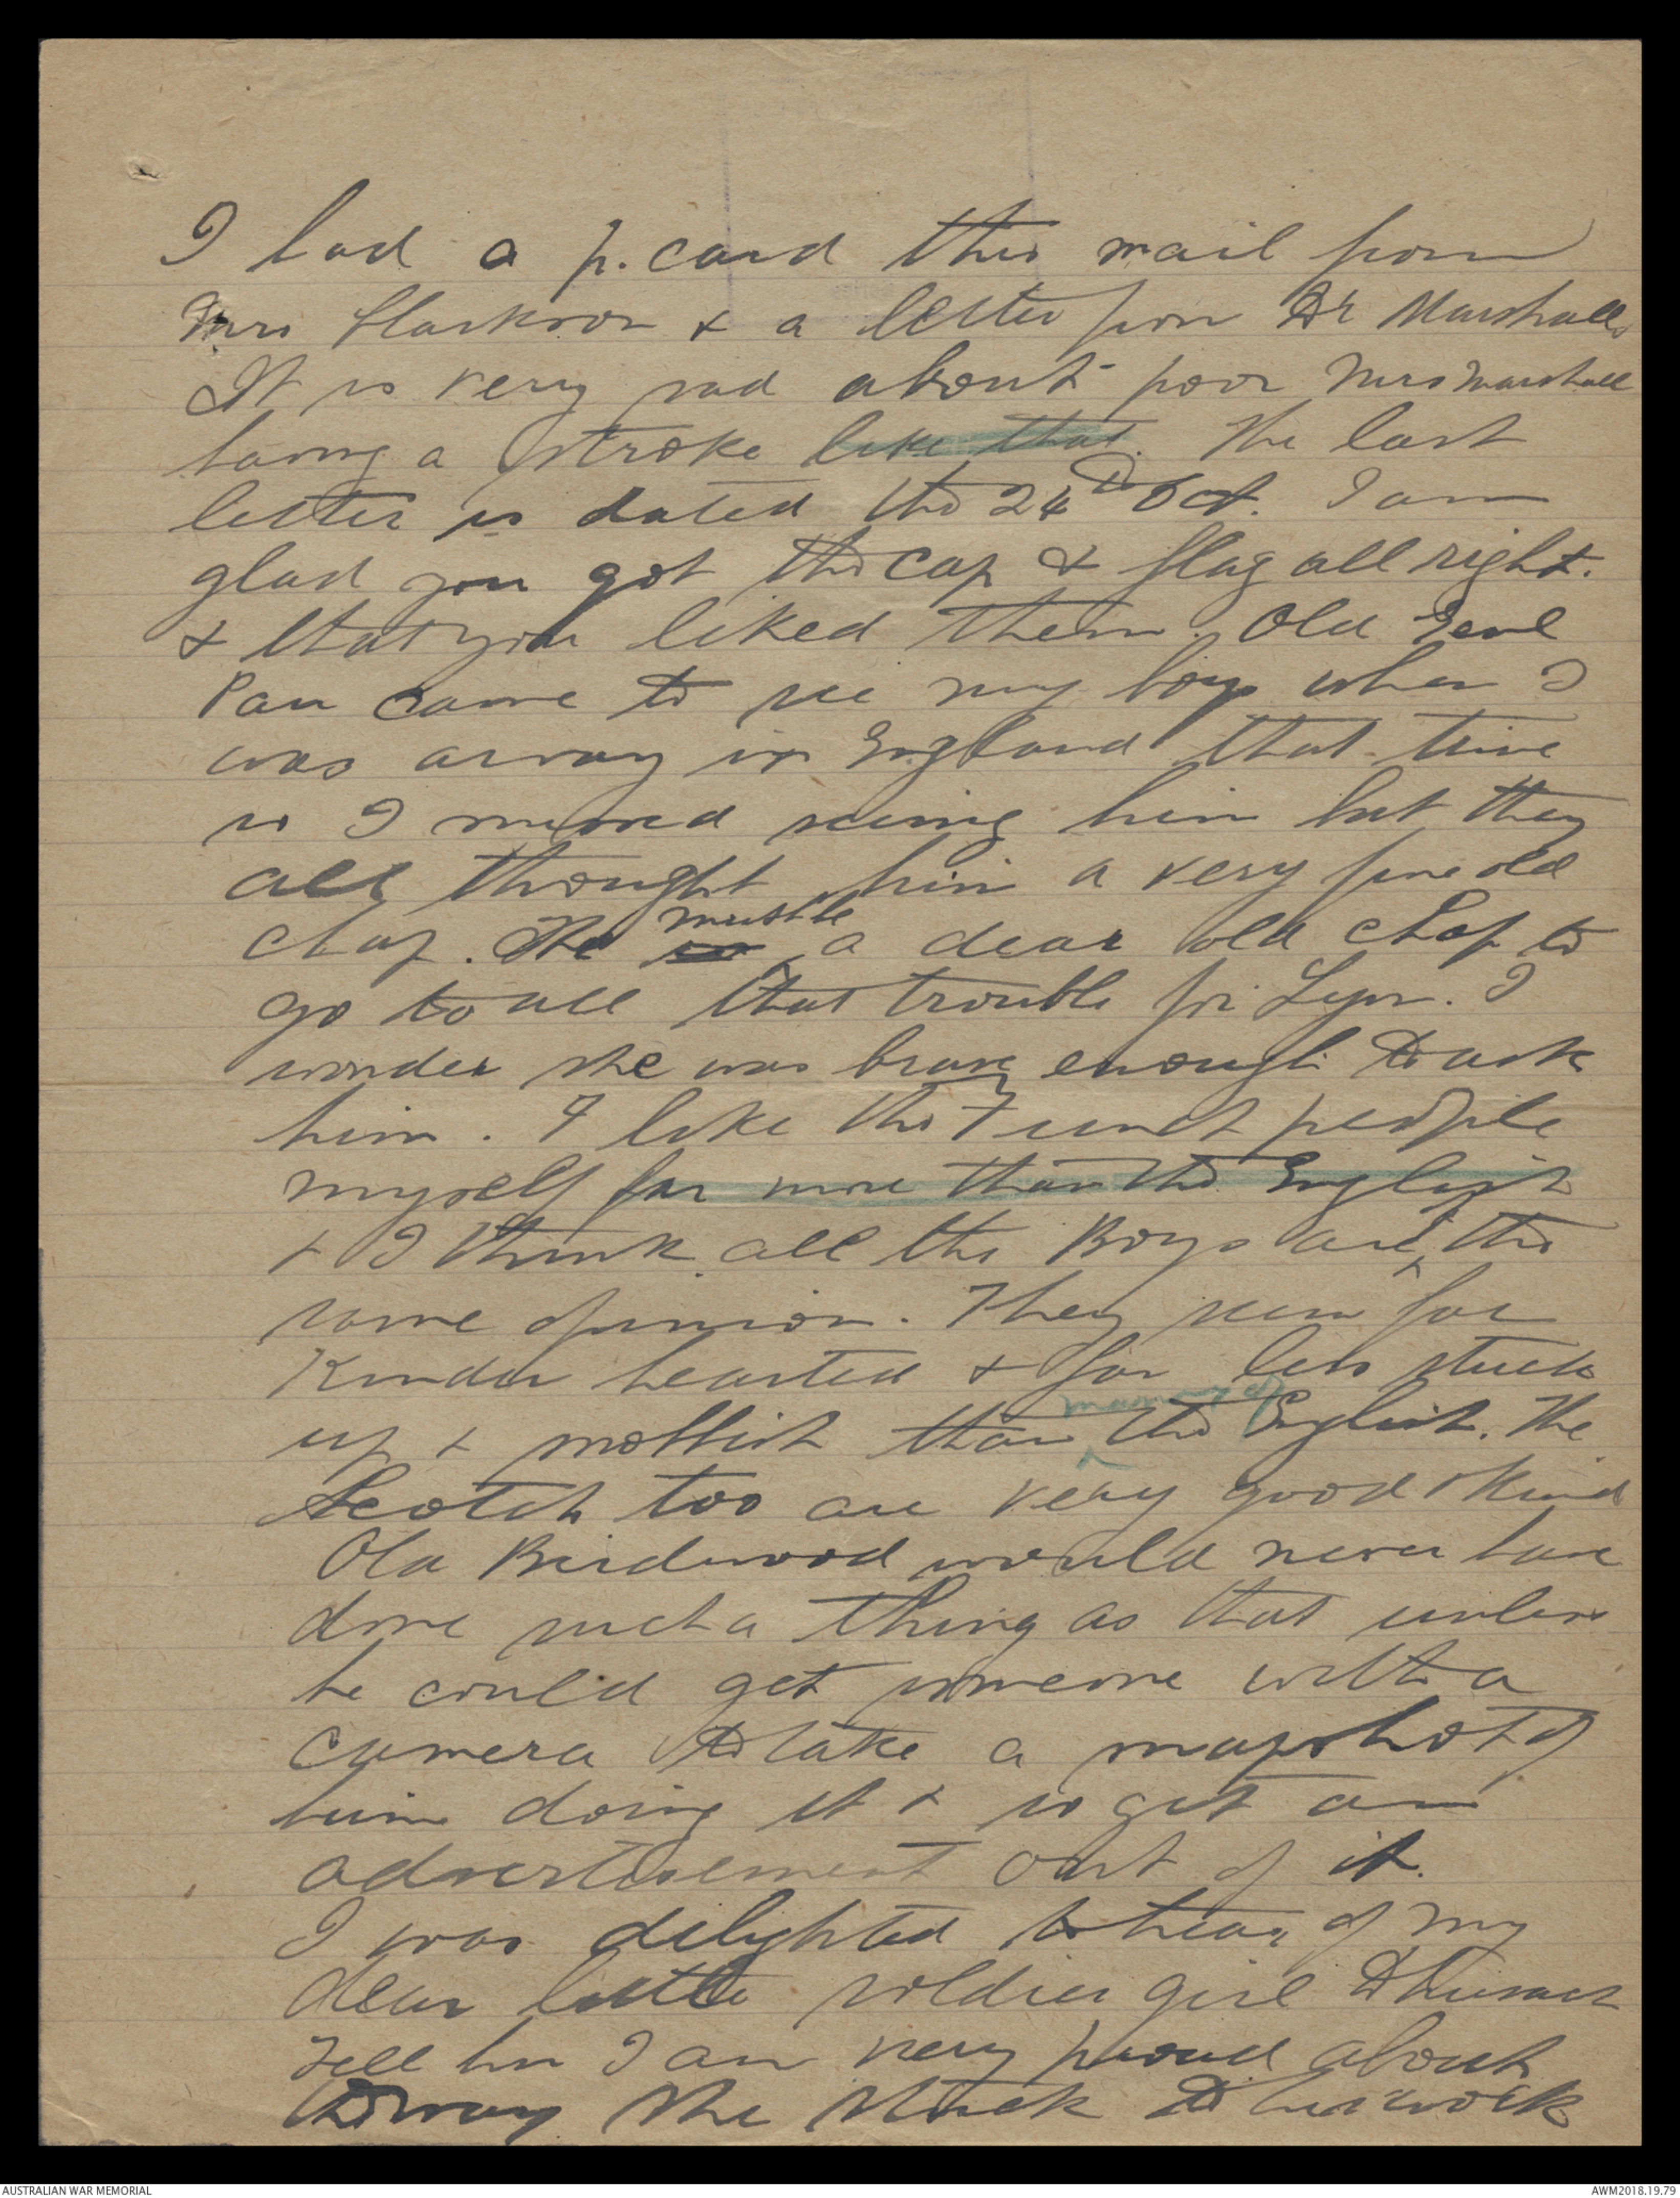 I had a p. card this mail from
Mrs Clarkson & a letter from Dr Marshall.
It is very sad about poor Mrs Marshall
having a stroke like that. The last
letter is dated the 24th Oct. I am
glad you got the cap & flag all right.
& that you liked them. Old Genl
Pau came to see my boys when I
was away in England that time
so I missed seeing him but they
all thought him a very fine old
chap. He must be a dear old chap to
go to all that trouble for Lyn. I
wonder she was brave enough to ask
him. I like the French people
myself far more than the English
& I think all the Boys are of the
same opinion. They seem far
kinder hearted & far less stuck
up & snobbish than many of the English. The
Scotch too are very good & kind
Old Birdwood would never have
done such a thing as that unless
he could get someone with a
camera to take a snapshot of
him doing it & so get an
advertisement out of it.
I was delighted to hear of my
dear little soldier girl
Tell her I am very proud about
the way she stuck to her work
AUSTRALIAN WAR MEMORIAL
AWM2018.19.79